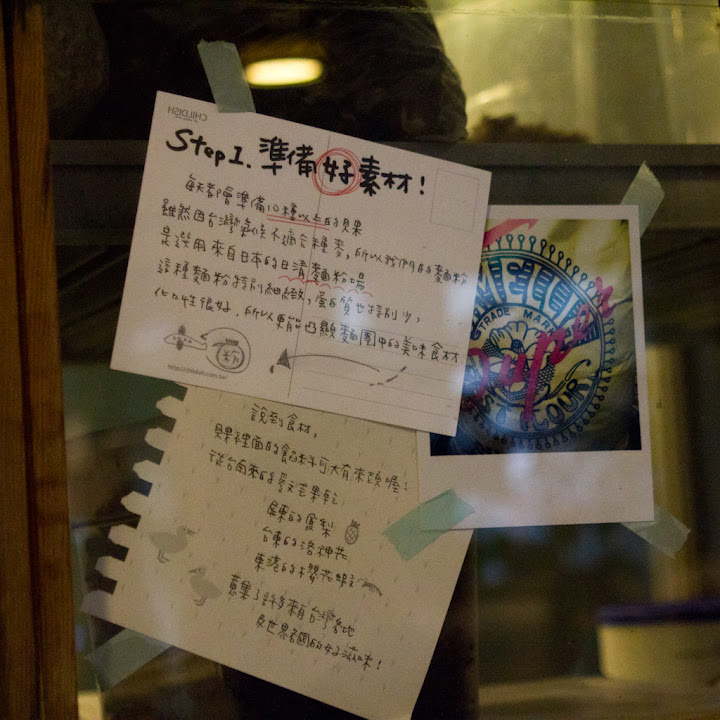 CHILDISH
Step1. 準備好素材!
每天都會準備10種以上的貝果
雖然因台灣氣候不適合種麥,所以我們的麵粉
是選用來自日本的日清麵粉場
這種麵粉特別細緻,蛋白質也特別少,
化口性很好,所以更能凸顯麵團中的美味食材
粉
http://childish.com.tw/
NISSHIN
TRADE MARK
Super
FLOUR
說到食材,
貝果裡面的餡料可大有來頭喔!
從台南來的愛文芒果乾
屏東的鳳梨
台東的洛神花
東港的櫻花蝦
蒐集了許多來自台灣各地
及世界各國的好滋味!